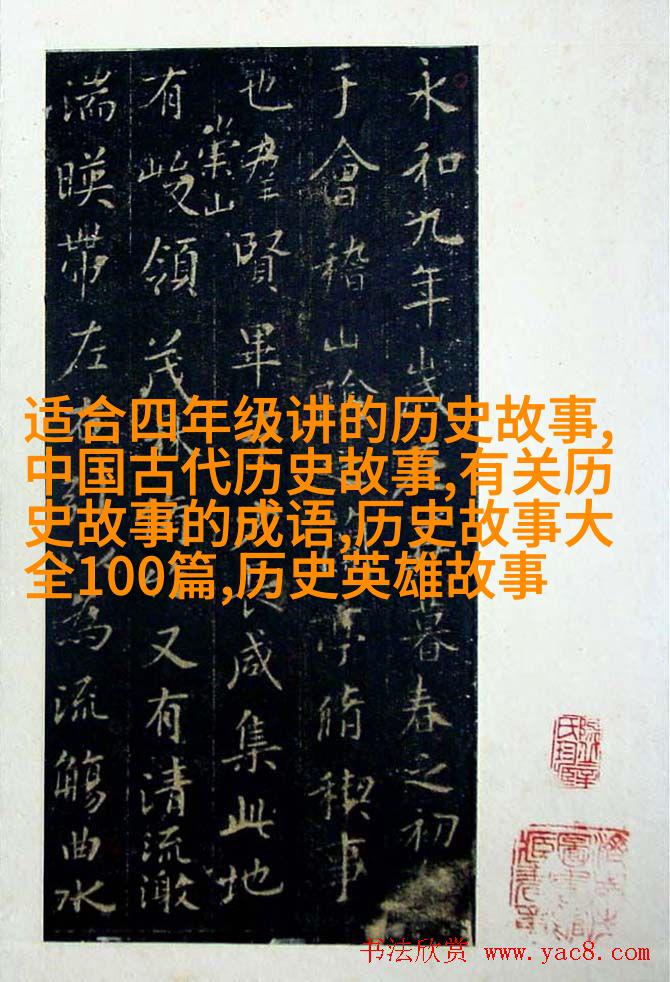 适合四年级讲的历史故事,
中国古代历史故事,有关历
史故事的成语,历史故事大
全100篇,历史英雄故事
永和九年歲暮春之初
于會稽山陰亭脩稧事
也羣賢畢咸集此地
有崇山峻領茂又有清流激
湍暎帶左右為流觴曲水
书法欣赏 www.yac8.com